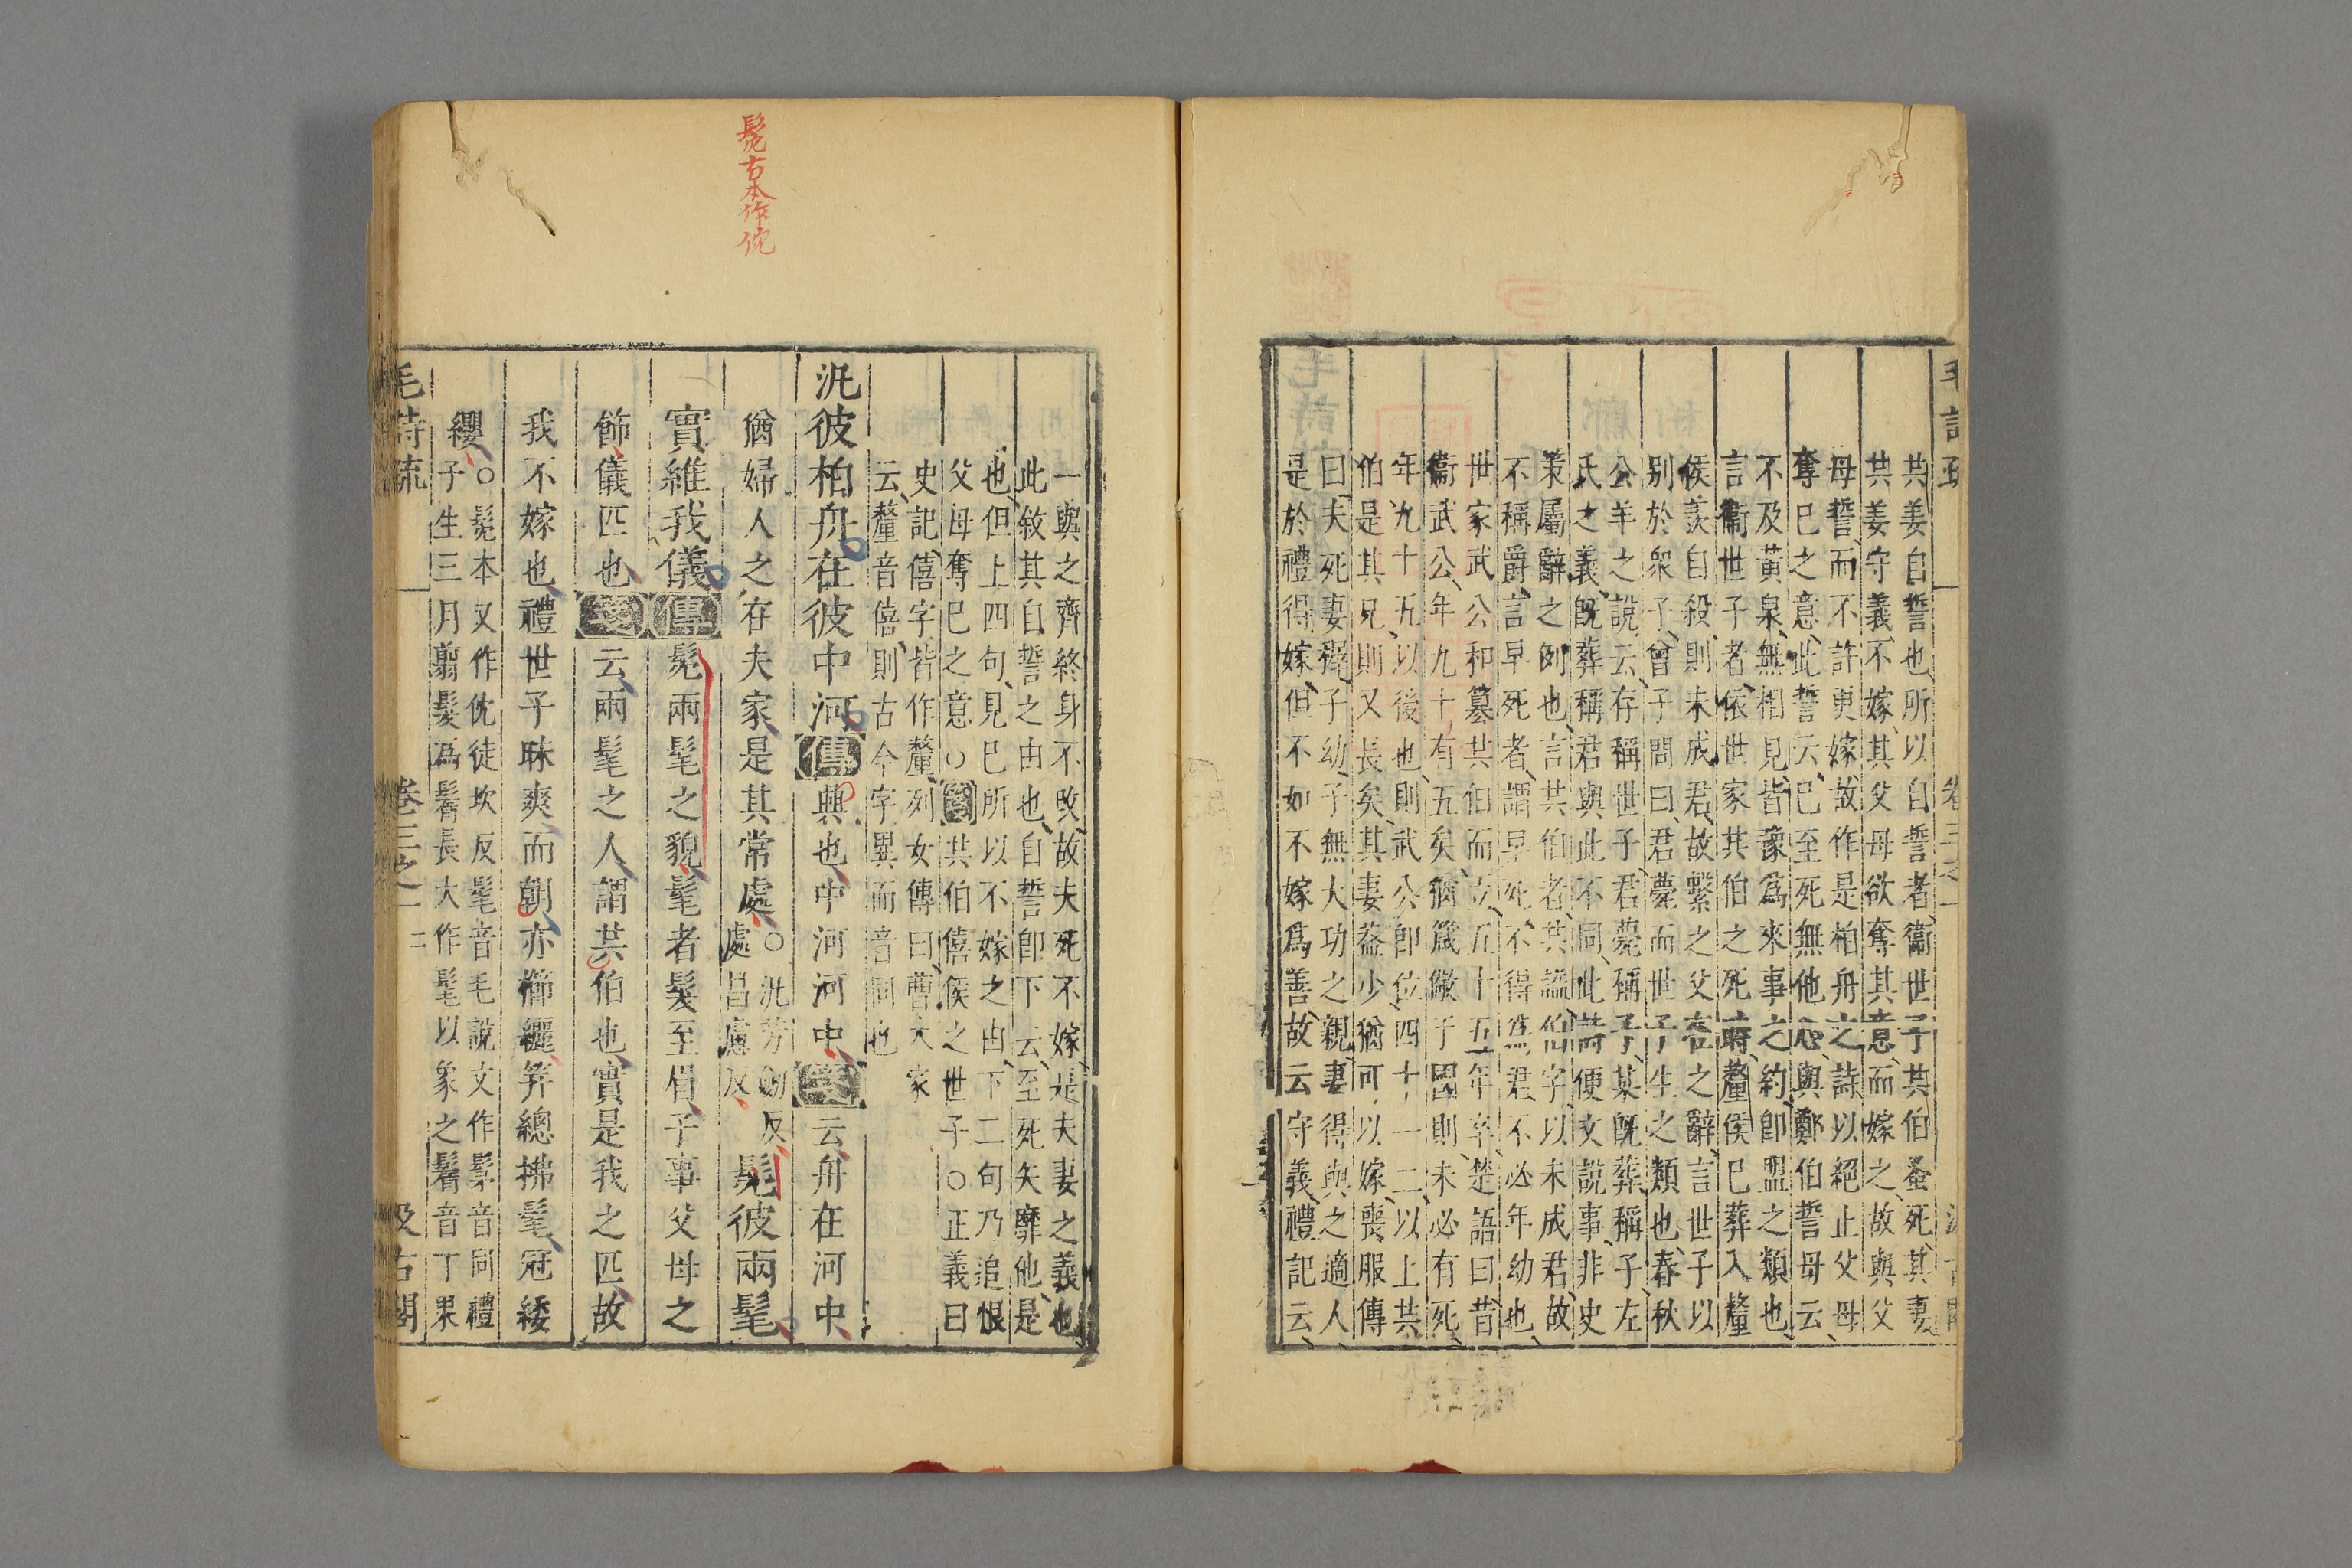 毛詩疏
卷三之一
共姜自誓也所以自誓者衞世子共伯蚤死其妻
共姜守義不嫁其父母欲奪其意而嫁之故與父
母誓而不許更嫁故作是柏舟之詩以絕止父母
奪巳之意此誓云巳至死無他心與鄭伯誓母云
不及黃泉無相見皆豫爲來事之約卽盟之類也
言衞世子者依世家共伯之死時釐侯巳葬入釐
侯羨自殺則未成君故繫之父在之辭言世子以
别於衆子曾子問曰君薨而世子生之類也春秋
公羊之說云存稱世子君薨稱子某旣葬稱子左
氏之義旣葬稱君與此不同此詩便文說事非史
策屬辭之例也言共伯者共謚伯字以未成君故
不稱爵言早死者謂早死不得爲君不必年幼也
世家武公和簒共伯而立五十五年卒楚語曰昔
衞武公年九十有五矣猶箴儆于國則未必有死
年九十五以後也則武公卽位四十一二以上共
伯是其兄則又長矣其妻葢少猶可以嫁喪服傳
曰夫死妻穉子幼子無大功之親妻得與之適人
是於禮得嫁但不如不嫁爲善故云守義禮記云
一與之齊終身不改故夫死不嫁是夫妻之義也
此敘其自誓之由也自誓卽下云至死矢靡他是
也但上四句見巳所以不嫁之由下二句乃追恨
父母奪巳之意○箋共伯僖侯之世子○正義曰
史記僖字皆作釐列女傳曰曹大家
云釐音僖則古今字異而音同也
汎彼柏舟在彼中河傳興也中河河中箋云舟在河中
猶婦人之在夫家是其常處○汎芳劒反
處昌慮反髧彼兩髦
實維我儀傳髧兩髦之貌髦者髮至眉子事父母之
飾儀匹也箋云兩髦之人謂共伯也實是我之匹故
我不嫁也禮世子昧爽而朝亦櫛纚笄總拂髦冠緌
纓○髧本又作忱徒坎反髦音毛說文作髳音同禮
子生三月翦髮爲鬌長大作髦以象之鬌音丁果
毛詩疏
卷三之一
二
汲古閣
髧古本作㐌